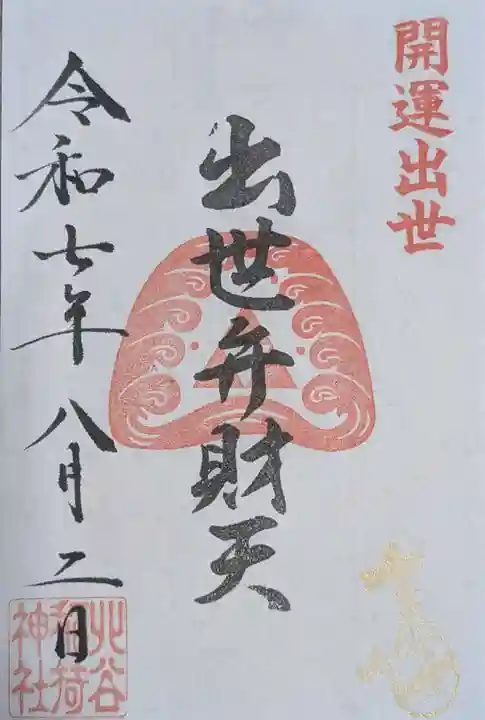 開運出世
出世弁財天
令和七年八月二日
北谷
稲荷
神社